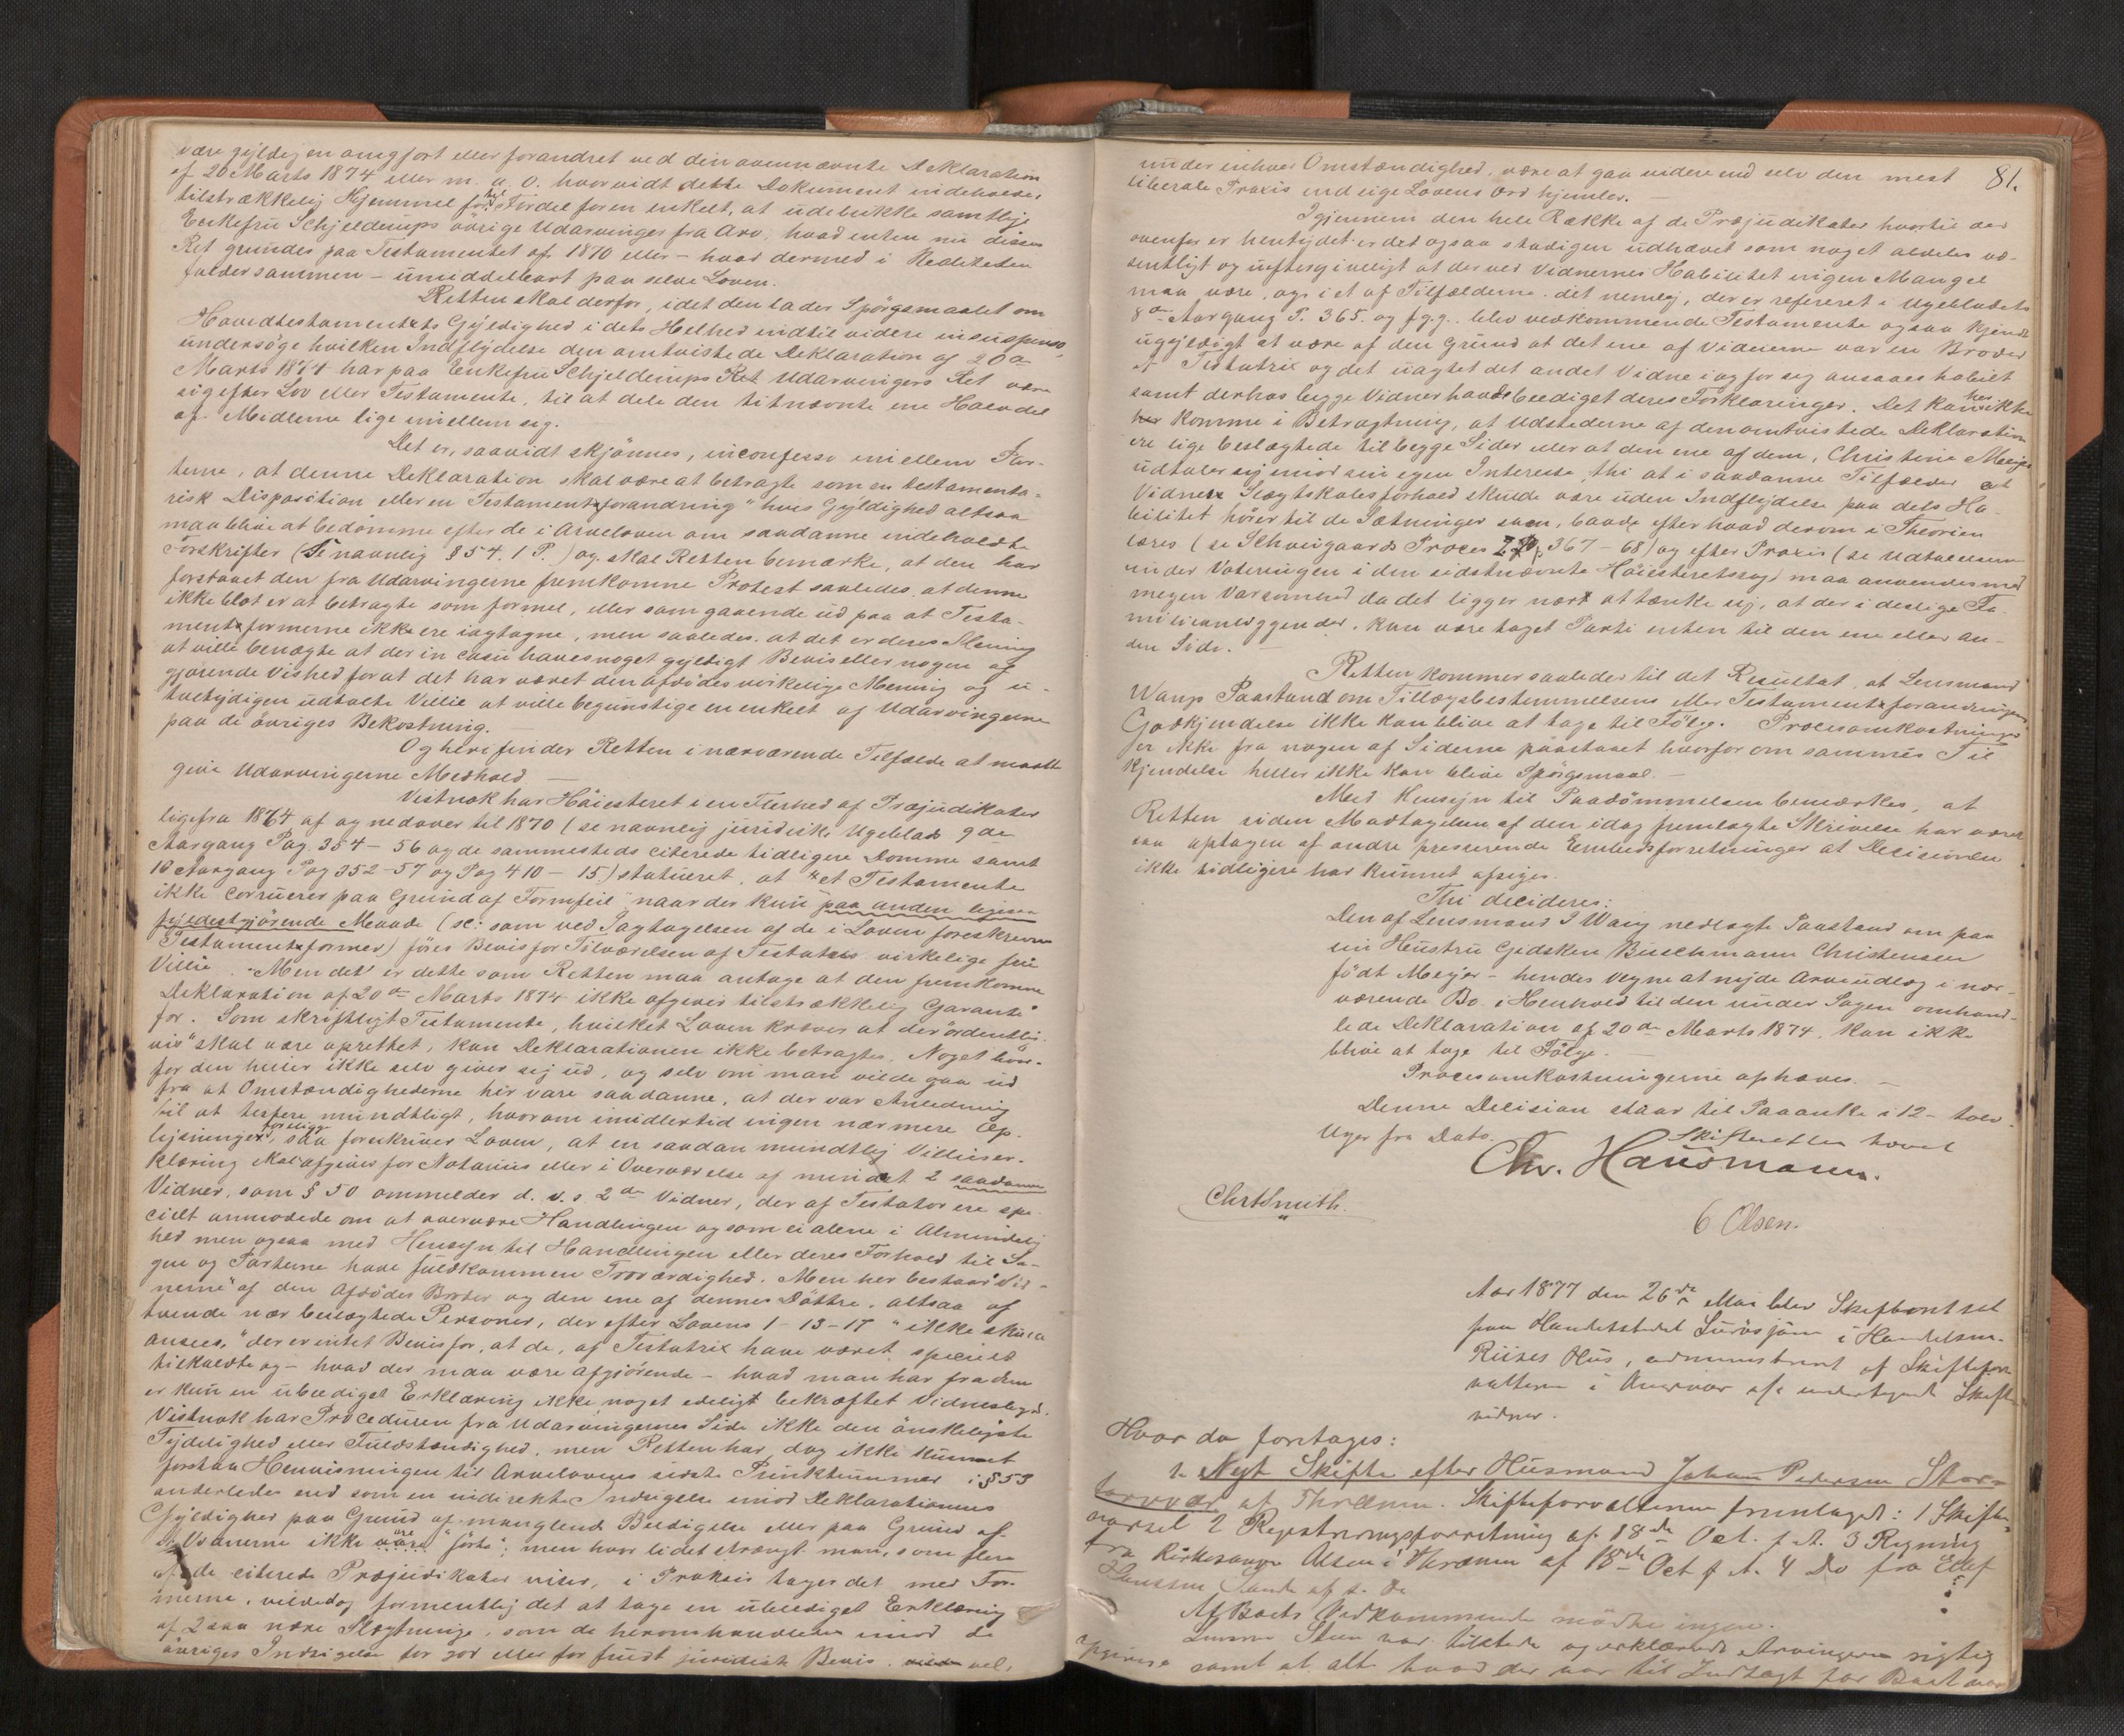 være gyldig en omgjort eller forandret ved den ovennævnte Deklaration
af 20 Marts 1874 eller m. a. O. hvorvidt dette Dokument indeholder
tilstrækkelig Hjemmel for til Fordel for en enkelt, at udelukke samtlige
Enkefru Schjelderups övrige Udarvinger fra Arv, hvad enten nu disses
Ret grundes paa Testamentet af 1870 eller – hvad dermed i Realiteten
falder sammen – umiddelbart paa selve Loven.
Retten skal derfor, idet den lader Spörgsmaalet om
Hovedtestamentets Gyldighed i dets Helhed indtil videre in suspenso,
undersöge hvilken Indflydelse den omtvistede Deklaration af 20de
Marts 1874 har paa Enkefru Schjelderups Ret Udarvingers Ret være
sig efter Lov eller Testamente, til at dele den titnævnte ene Halvdel
af Midlerne lige imellem sig.
Det er, saavidt skjönnes, in confesso imellem Par-
terne, at denne Deklaration skal være at betragte som en testamenta-
risk Disposition eller en Testamentsforandring" hvis Gyldighed altsaa
maa blive at bedömme efter de i Arveloven om saadanne indeholdte
Forskrifter (Se navnlig § 54. 1 P.) og skal Retten bemærke, at den har
forstaaet den fra Udarvingerne fremkomne Protest saaledes, at denne
ikke blot er at betragte som formel, eller som gaaende ud paa at Testa-
mentsformerne ikke ere iagtagne, men saaledes, at det er deres Mening
at ville benægte at der in casu haves noget gyldigt Bevis eller nogen af
gjörende Vished for at det har været den afdödes virkelige Mening og u-
tvetydigen udtalte Villie at ville begunstige en enkelt af Udarvingerne
paa de övriges Bekostning.
Og heri finder Retten i nærværende Tilfælde at maatte
give Udarvingerne Medhold. —
Vistnok har Höiesteret i en Flerhed af Præjudikater
ligefra 1864 af og nedover til 1870 (se navnlig juridisk Ugeblad 9de
Aargang Pag. 354 – 56 og de sammesteds citerede tidligere Domme samt
10 Aargang Pag 352 – 57 og Pag 410 – 15.) statueret, at "et Testamente
ikke corruerer paa Grund af Formfeil naar der kun paa anden ligesaa
fyldestgjörende Maade (sc: som ved Iagtagelsen af de i Loven foreskrevne
Testamentsformer) föres Bevis for Tilværelsen af Testators virkelige frie
Villie. – Men det er dette som Retten maa antage at den fremkomne
Deklaration af 20de Marts 1874 ikke afgiver tilstrækkelig Garanti
for. Som skriftligt Testamente, hvilket Loven kræver at der "ordentlig-
vis" skal være oprettet, kan Deklarationen ikke betragtes, Noget hvor-
for den heller ikke selv giver sig ud, og selv om man vilde gaa ud
fra at Omstændighederne her vare saadanne, at der var Anledning
til at testere mundtligt, hvorom imidlertid ingen nærmere Op-
lysninger foreligge, saa foreskriver Loven, at en saadan mundtlig Villieser-
klæring skal afgives for Notarius eller i Overværelse af mindst 2 saadanne
Vidner, som § 50 ommelder d. v. s. 2de Vidner, der af Testator ere spe-
cielt anmodede om at overvære Handlingen og som ei alene i Almindelig
hed men ogsaa med Hensyn til Handlingen eller deres Forhold til Sa-
gen og Parterne have fuldkommen Troværdighed. Men her bestaar Vid-
nerne af den Afdödes Broder og den ene af dennes Döttre, altsaa af
tvende nær beslægtede Personer, der efter Lovens 1 – 13 – 17 "ikke skulle
ansees," der er intet Bevis for, at de, af Testatrix have været specielt
tilkaldte og – hvad der maa være afgjörende – hvad man har fra dem
er kun en ubeediget Erklæring ikke noget edeligt bekræftet Vidnesbyrd.
Vistnok har Proceduren fra Udarvingernes Side ikke den önskeligste
Tydelighed eller Fuldstændighed, men Retten har dog ikke kunnet
forstaa Henvisningen til Arvelovens sidste Punktummer i § 53
anderledes end som en indirekte Indsigelse imod Deklarationens
Gyldighed paa Grund af manglende Beedigelse eller paa Grund af
at Vidnerne ikke vare "förte"; men hvor lidet strængt man, som flere
af de citerede Præjudikater viser, i Praksis tager det med For-
merne, vilde dog formentlig det at tage en ubeediget Erklæring
af 2 saa nære Slægtninge, som de heromhandlede imod de
övriges Indsigelse for god eller for fuldt juridisk Bevis. vel,
81.
under enhver Omstændighed, være at gaa videre end selv den mest
liberale Praxis end sige Lovens Ord hjemler. —
Igjennem den hele Række af de Præjudikater hvortil der
ovenfor er hentydet er det ogsaa stadigen udhævet som noget aldeles væ-
sentligt og uefterg iveligt at der ved Vidnernes Habilitet ingen Mangel
maa være, og i et af Tilfælderne, det nemlig, der er refereret i Ugebladets
8de Aargang P. 365. og f.g.g. blev vedkommende Testamente ogsaa kjendt
ugyldigt at være af den Grund at det ene af Vidnerne var en Broder
af Testatrix og det uagtet det andet Vidne i og for sig ansaaes habilt
samt derhos begge Vidner havde beediget deres Forklaringer. Det kan her ikke
komme i Betragtning, at Udstederne af den omtvistede Deklaration
ere lige beslægtede til begge Sider eller at den ene af dem, Christine Meyer
udtaler sig imod sin egen Interesse, thi at i saadanne Tilfælder et
Vidnes Slægtskabsforhold skulde være uden Indflydelse paa dets Ha-
bilitet hörer til de Sætninger som, baade efter hvad derom i Theorien
læres (se Schweigaards Proces 367 – 68) og efter Praxis (se Udtalelserne
under Voteringen i den sidstnævnte Höiesteretssag) maa anvendes med
megen Varsomhed da det ligger nært at tænke sig, at der i deslige Fa-
milieanliggender, kan være taget Parti enten til den ene eller an-
den Side. —
Retten kommer saaledes til det Resultat, at Lensmand
Wangs Paastand om Tillægsbestemmelsens eller Testamentsforandringens
Godkjendelse ikke kan blive at tage til Fölge. Procesomkostninger
er ikke fra nogen af Siderne paastaaet hvorfor om sammes Til
kjendelse heller ikke kan blive Spörgsmaal. —
Med Hensyn til Paadömmelsen bemærkes, at
Retten siden Modtagelsen af den idag fremlagte Skrivelse har været
saa optagen af andre presserende Embedsforretninger at Decisionen
ikke tidligere har kunnet afsiges.
Thi decideres:
Den af Lensmand J Wang nedlagte Paastand om paa
sin Hustru Gjedsken Buschmann Christensen
födt Meyer – hendes Vegne at nyde Arveudlæg i nær-
værende Bo i Henhold til den under Sagen omhand-
lede Deklaration af 20de Marts 1874, kan ikke
blive at tage til Fölge. —
Procesomkostningerne ophæves. —
Denne Decision staar til Paaanke i 12 – tolv
Uger fra Dato.
Skifteretten hævet
Chr. Hausmann.
Chr Smith.
C Olsen.
Aar 1877 den 26de Mai blev Skifteret sat
paa Handelsstedet Surösjöen i Handelsm.
Riises Hus, administreret af Skiftefor-
valteren i Overvær af undertegnede Skifte
vidner.
Hvor da foretages:
1. Nyt Skifte efter Husmand Johan Pedersen Stor-
af Thrænen. Skifteforvalteren fremlagde: 1 Skifte-
2 Registreringsforretning af 18de Oct. f. A. 3 Regning
fra Kirkesanger Olsen i Thrænen af 18de Oct f A. 4 Do fra
Hanssen af s. D.
Af Boets Vedkommende mödte ingen.
var tilstede og erklærede Arvingerne rigtig
opgivne samt at alt hvad der var til Indtægt for Boet var